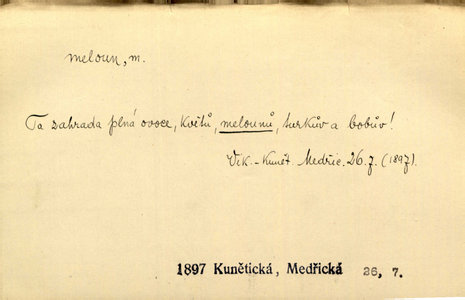 meloun, m.
Ta zahrada plná ovoce, květů, melounů, turkův a bobův!
Vik.-Kunět. Medřic. 26. 7. (1897).
1897 Kunětická, Medřická 26, 7.